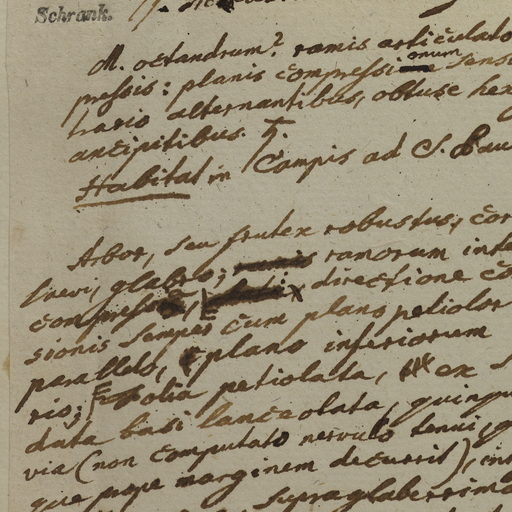 Schrank.
M. octandrum? ramis articulato
pressis: planis compressionum sensu
trario alternantibus, obtuse hex
ancipitibus. †.
Habitat in Campis ad S. Pau
Arbor, seu frutex robustus, cor
laevi, glabro; ramorum infe
compressio, directione co
sionis semper cum plano petiolor
parallelo, plano inferiorum
rio; Folia petiolata, ex
data basi lanceolata, quinqu
via (non computato nervulo tenui, q
que prope marginem decurrit), in
supra glaberrima